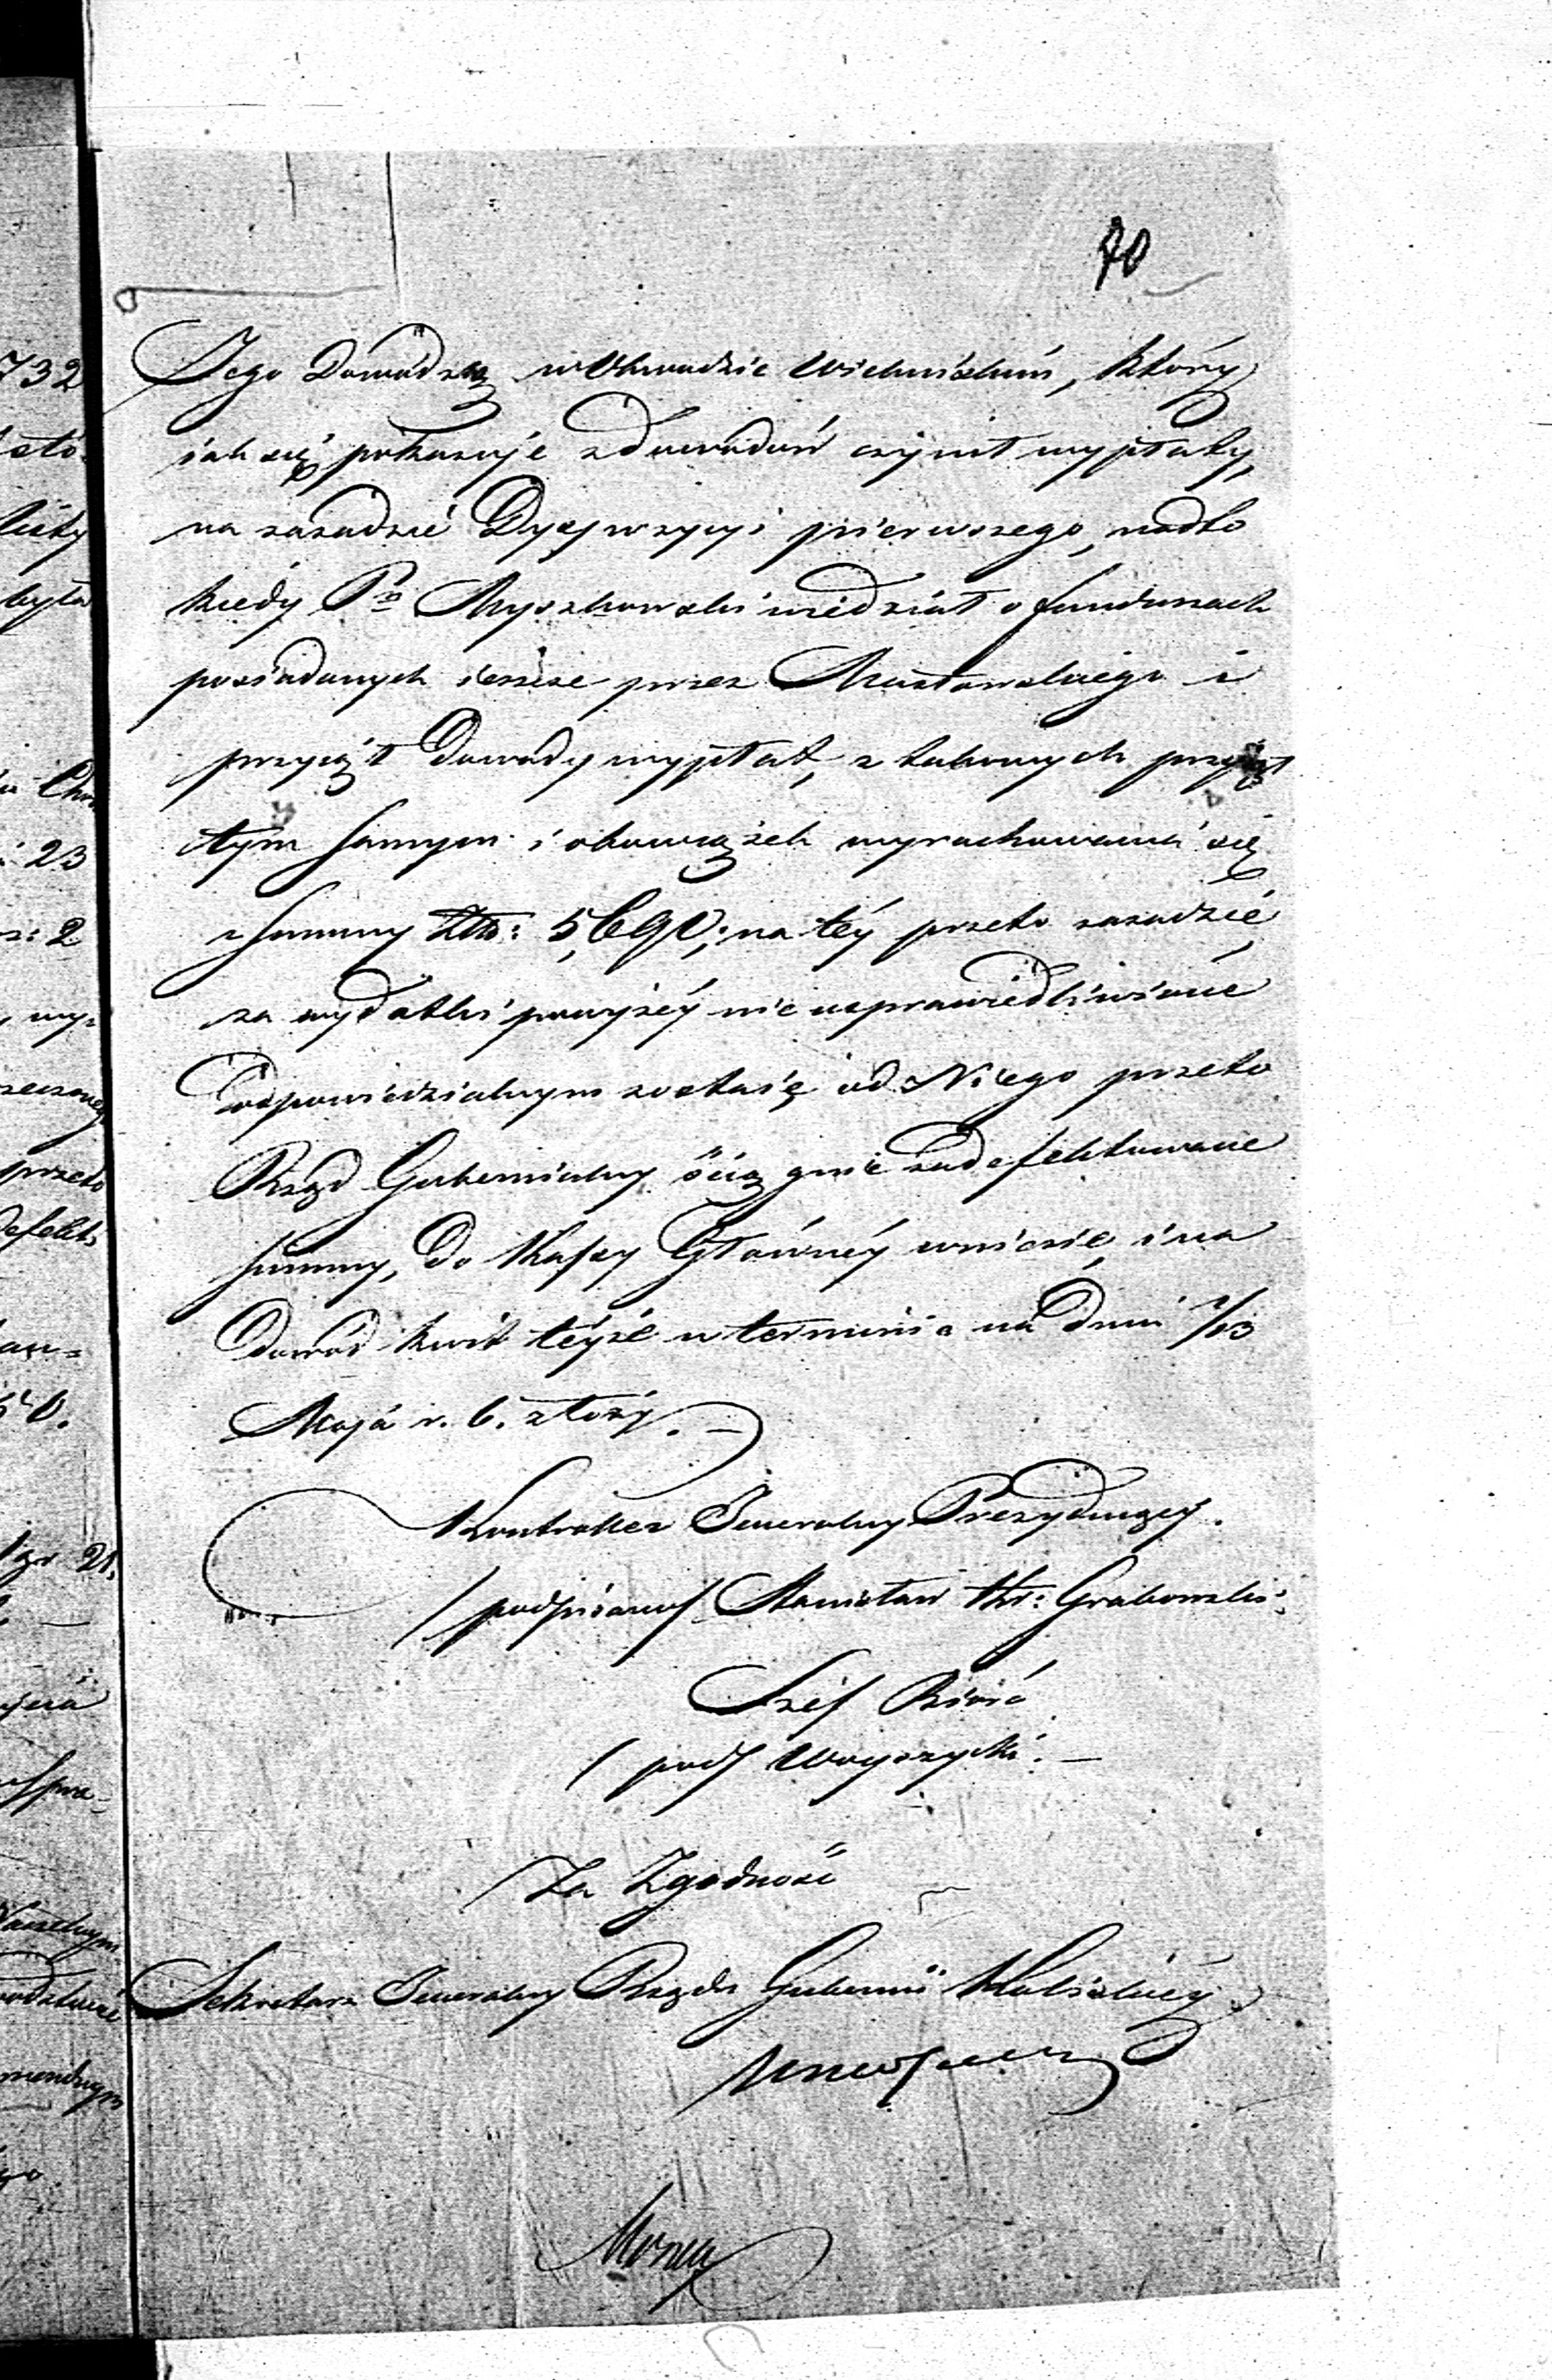 70
Jego Dowódzcą w Obwodzie Wieluńskim, który
iak się pokazuje z dowodów czynił wypłaty,
na zasadzie Dyspozycyi pierwszego, nadto
kiedy Pn Myszkowski wiedział o funduszach
posiadanych ieszcze przez Masłowskiego i
przyiął Dowody wypłat, z takowych przyiął
tym samym i obowiązek wyrachowania się
z summy Złp: 5,690; na téy przeto zasadzie
za wydatki powyżéy nie usprawiedliwione
Odpowiedzialnym zostaie, od Niego przeto
Rząd Gubernialny ściągnie zadefektowane
summy, do Kassy Głównéy wniesie, i na
Dowód kwit téyże w terminie na dniu 1/13
Maja r. b. złoży. —
Kontroller Jeneralny Prezydujący.
/podpisano/ Stanisław Hr: Grabowski.
Szef Biura
/pod/ Woyczycki. —
Za Zgodność
Sekretarz Jeneralny Rządu Gubernii Kaliskiéy
732
byta
23
2
wy=
przeto
defekt=
gr 21.